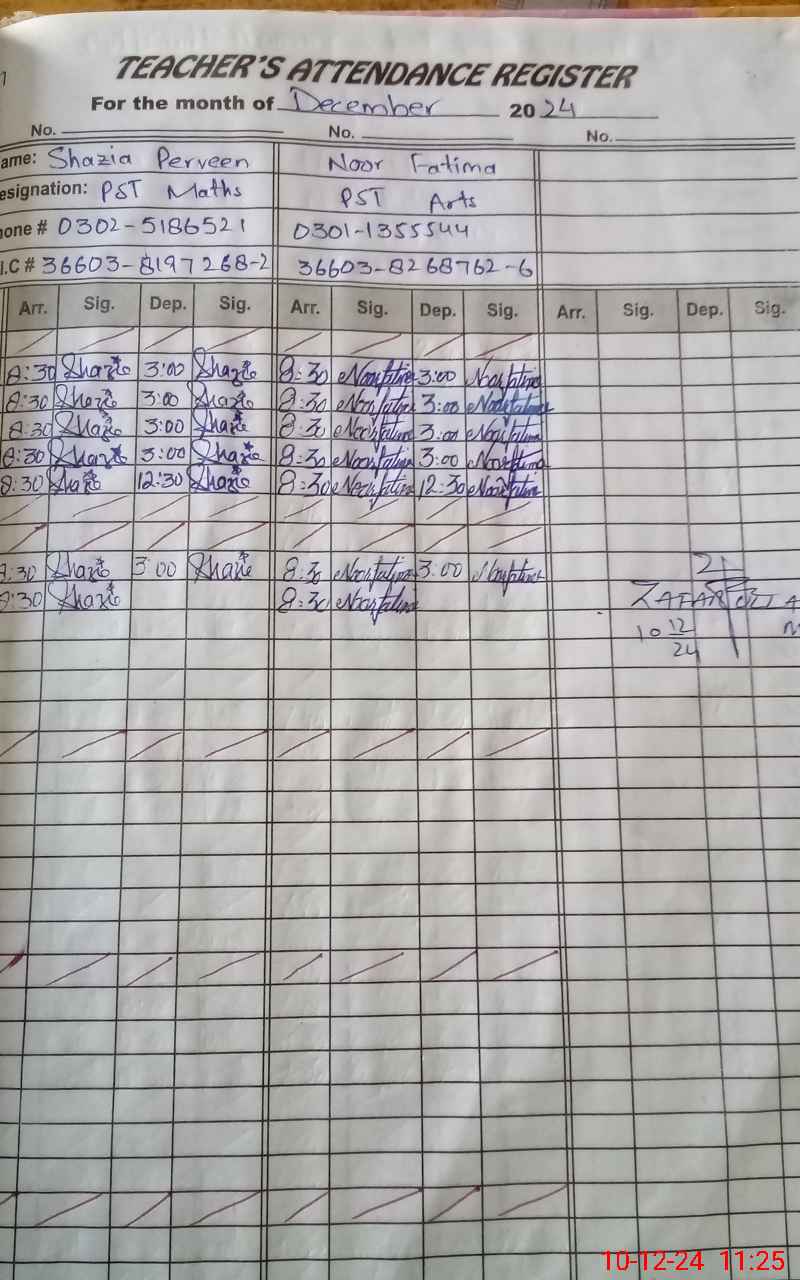 TEACHER'S ATTENDANCE REGISTER
For the month of December 2024
No. No. No.
ame: Shazia Perveen Noor Fatima
esignation: PST Maths PST Arts
hone # 0302-5186521 0301-1355544
I.C # 36603-8197268-2 36603-8268762-6
Arr. Sig. Dep. Sig. Arr. Sig. Dep. Sig. Arr. Sig. Dep. Sig.
8:30 Shazia 3:00 Shazia 8:30 Noorfatima 3:00 Noorfatima
8:30 Shazia 3:00 Shazia 8:30 Noorfatima 3:00 Noorfatima
8:30 Shazia 3:00 Shazia 8:30 Noorfatima 3:00 Noorfatima
8:30 Shazia 3:00 Shazia 8:30 Noorfatima 3:00 Noorfatima
8:30 Shazia 12:30 Shazia 8:30 Noorfatima 12:30 Noorfatima
8:30 Shazia 3:00 Shazia 8:30 Noorfatima 3:00 Noorfatima
8:30 Shazia 8:30 Noorfatima
ZAFAR
10 12
24
10-12-24 11:25